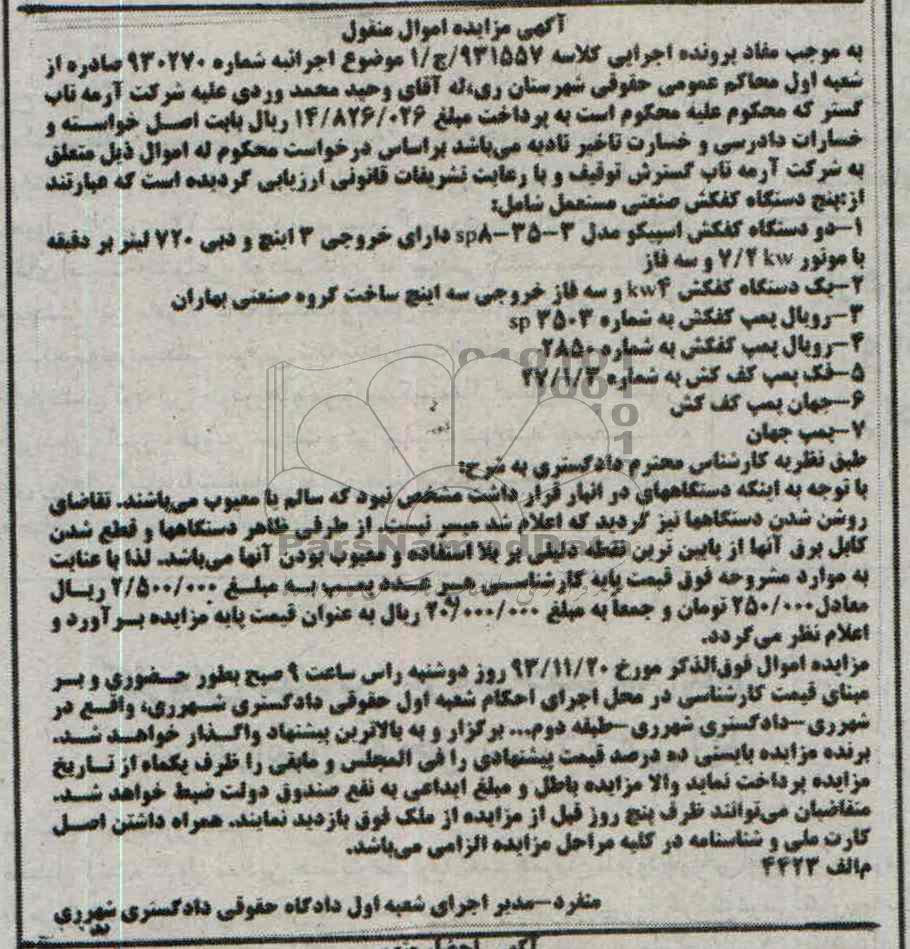 آگهی مزایده اموال منقول
به موجب مفاد پرونده اجرایی کلاسه ۹۳۱۵۵۷/ج/۱ موضوع اجرائیه شماره ۹۳۰۲۷۰ صادره از
شعبه اول محاکم عمومی حقوقی شهرستان ری،له آقای وحید محمد وردی علیه شرکت آرمه تاب
گستر که محکوم علیه محکوم است به پرداخت مبلغ ۱۴/۸۲۶/۰۲۶ ریال بابت اصل خواسته و
خسارات دادرسی و خسارت تاخیر تادیه می‌باشد براساس درخواست محکوم له اموال ذیل متعلق
به شرکت آرمه تاب گسترش توقیف و با رعایت تشریفات قانونی ارزیابی گردیده است که عبارتند
از:پنج دستگاه کفکش صنعتی مستعمل شامل:
۱-دو دستگاه کفکش اسپیکو مدل ۳-۳۵-sp۸ دارای خروجی ۳ اینچ و دبی ۷۲۰ لیتر بر دقیقه
با موتور ۷/۴ kw و سه فاز
۲-یک دستگاه کفکش kw۴ و سه فاز خروجی سه اینچ ساخت گروه صنعتی بهاران
۳-رویال پمپ کفکش به شماره sp ۳۵۰۳
۴-رویال پمپ کفکش به شماره ۲۸۵۰
۵-فک پمپ کف کش به شماره ۲۷/۱/۳
۶-جهان پمپ کف کش
۷-پمپ جهان
طبق نظریه کارشناس محترم دادگستری به شرح:
با توجه به اینکه دستگاههای در انبار قرار داشت مشخص نبود که سالم یا معیوب می‌باشند. تقاضای
روشن شدن دستگاهها نیز گردید که اعلام شد میسر نیست. از طرفی ظاهر دستگاهها و قطع شدن
کابل برق آنها از پایین ترین نقطه دلیلی بر بلا استفاده و معیوب بودن آنها می‌باشد. لذا با عنایت
به موارد مشروحه فوق قیمت پایه کارشناسی هر عدد پمپ به مبلغ ۲/۵۰۰/۰۰۰ ریال
معادل ۲۵۰/۰۰۰ تومان و جمعاً به مبلغ ۲۰/۰۰۰/۰۰۰ ریال به عنوان قیمت پایه مزایده برآورد و
اعلام نظر می‌گردد.
مزایده اموال فوق‌الذکر مورخ ۹۳/۱۱/۲۰ روز دوشنبه راس ساعت ۹ صبح بطور حضوری و بر
مبنای قیمت کارشناسی در محل اجرای احکام شعبه اول حقوقی دادگستری شهرری، واقع در
شهرری-دادگستری شهرری-طبقه دوم... برگزار و به بالاترین پیشنهاد واگذار خواهد شد.
برنده مزایده بایستی ده درصد قیمت پیشنهادی را فی المجلس و مابقی را ظرف یکماه از تاریخ
مزایده پرداخت نماید والا مزایده باطل و مبلغ ابداعی به نفع صندوق دولت ضبط خواهد شد.
متقاضیان می‌توانند ظرف پنج روز قبل از مزایده از ملک فوق بازدید نمایند. همراه داشتن اصل
کارت ملی و شناسنامه در کلیه مراحل مزایده الزامی می‌باشد.
م‌الف ۴۴۲۳
منفرد-مدیر اجرای شعبه اول دادگاه حقوقی دادگستری شهرری
ParsNamadData